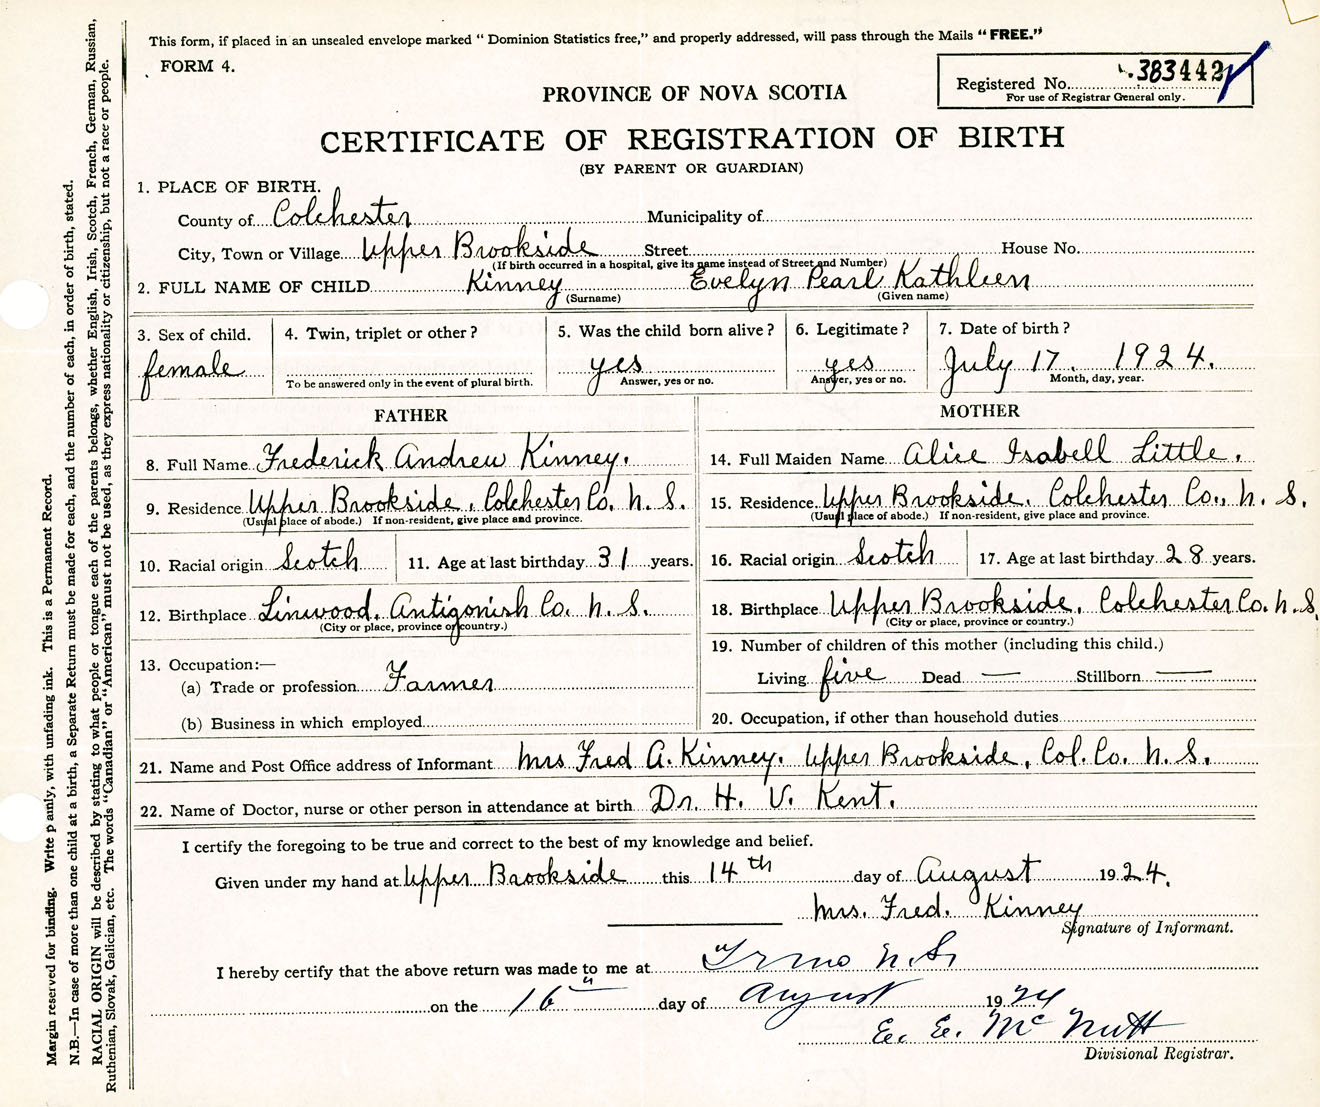 This form, if placed in an unsealed envelope marked "Dominion Statistics free," and properly addressed, will pass through the Mails "FREE."
FORM 4.
Registered No. 383442
For use of Registrar General only.
PROVINCE OF NOVA SCOTIA
CERTIFICATE OF REGISTRATION OF BIRTH
(BY PARENT OR GUARDIAN)
1. PLACE OF BIRTH.
County of Colchester Municipality of
City, Town or Village Upper Brookside Street House No.
(If birth occurred in a hospital, give its name instead of Street and Number)
2. FULL NAME OF CHILD Kinney Evelyn Pearl Kathleen
(Surname) (Given name)
3. Sex of child. female
4. Twin, triplet or other?
To be answered only in the event of plural birth.
5. Was the child born alive? yes
Answer, yes or no.
6. Legitimate? yes
Answer, yes or no.
7. Date of birth? July 17. 1924.
Month, day, year.
FATHER
8. Full Name Frederick Andrew Kinney.
9. Residence Upper Brookside, Colchester Co. N. S.
(Usual place of abode.) If non-resident, give place and province.
10. Racial origin Scotch 11. Age at last birthday 31 years.
12. Birthplace Linwood, Antigonish Co. N. S.
(City or place, province or country.)
13. Occupation:—
(a) Trade or profession Farmer
(b) Business in which employed
MOTHER
14. Full Maiden Name Alice Isabell Little.
15. Residence Upper Brookside, Colchester Co., N. S.
(Usual place of abode.) If non-resident, give place and province.
16. Racial origin Scotch 17. Age at last birthday 28 years.
18. Birthplace Upper Brookside, Colchester Co. N. S.
(City or place, province or country.)
19. Number of children of this mother (including this child.)
Living five Dead — Stillborn —
20. Occupation, if other than household duties
21. Name and Post Office address of Informant Mrs Fred A. Kinney. Upper Brookside, Col. Co. N. S.
22. Name of Doctor, nurse or other person in attendance at birth Dr. H. V. Kent.
I certify the foregoing to be true and correct to the best of my knowledge and belief.
Given under my hand at Upper Brookside this 14th day of August 1924.
Mrs. Fred. Kinney
Signature of Informant.
I hereby certify that the above return was made to me at Truro N.S.
on the 16" day of August 1924
E. E. McNutt
Divisional Registrar.
Margin reserved for binding. Write plainly, with unfading ink. This is a Permanent Record.
N.B.—In case of more than one child at a birth, a Separate Return must be made for each, and the number of each, in order of birth, stated.
RACIAL ORIGIN will be described by stating to what people or tongue each of the parents belongs, whether English, Irish, Scotch, French, German, Russian,
Ruthenian, Slovak, Galician, etc. The words "Canadian" or "American" must not be used, as they express nationality or citizenship, but not a race or people.